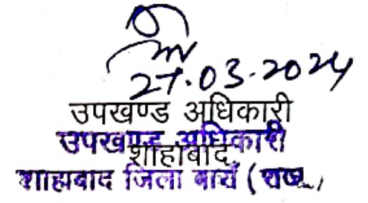 27.03.2024
उपखण्ड अधिकारी
उपखण्ड अधिकारी
शाहाबाद
शाहाबाद जिला बारां (राज.)